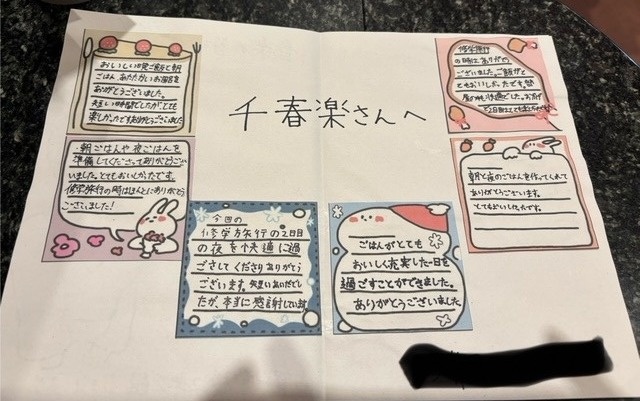 千春楽さんへ
おいしい晩ご飯と朝
ごはん、あたたかいお風呂を
ありがとうございました。
短い時間でしたがとても
楽しかったですありがとうございました
朝ごはんや夜ごはんを
準備してくださってありがとうござ
いました。とてもおいしかったです。
修学旅行の時はほんとにありがとう
ございました!
今回の
修学旅行の2日目
の夜を快適に過
ごさしてくださりありがとう
ございます。短いあいだでし
たが、本当に感謝しています
ごはんがとても
おいしく充実した一日を
過ごすことができました。
ありがとうございました
修学旅行
の時はありがとう
ございました。ご飯がと
てもおいしかったです。部
朝と夜のごはんを作ってくれて
ありがとうございます。
とてもおいしかったです。